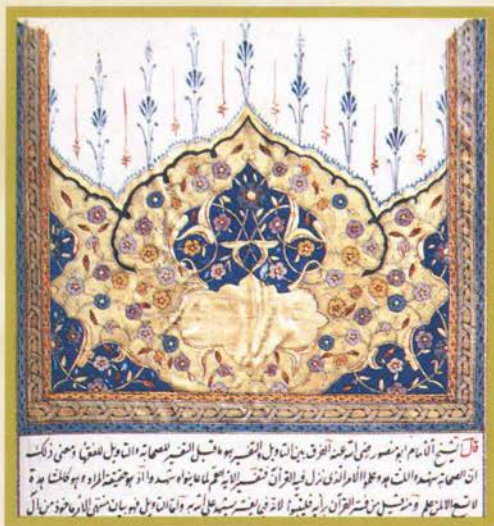 قال الشيخ الامام ابو منصور رضى الله عنه الفرق بين التاويل والتفسير هو ما قيل التفسير للصحابة والتاويل للفقهاء ومعنى ذلك
ان الصحابة شهدوا المشاهد وعلموا الامر الذى نزل فيه القرآن فتفسير الآية لما عاينوا وشهدوا اذ هو حقيقة المراد وهو كالمشاهدة
لا تسمع الا لمن علم ومنه قيل من فسر القرآن برأيه لانه فيما يفسر يشهد على الله به واما التاويل فهو بيان منتهى الامر ماخوذ من آل